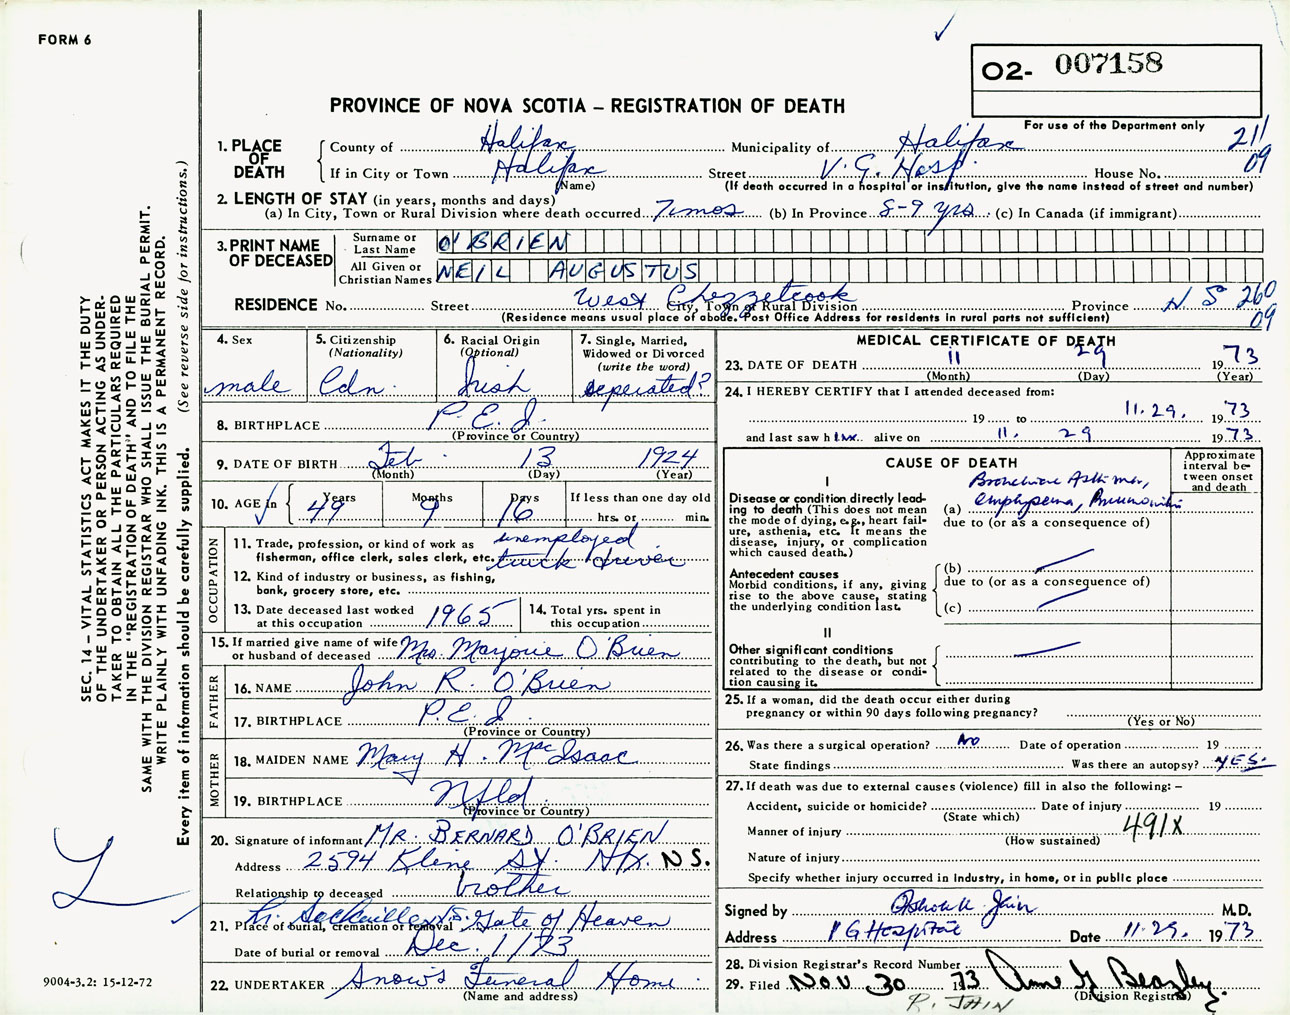 FORM 6
O2- 007158
PROVINCE OF NOVA SCOTIA – REGISTRATION OF DEATH
For use of the Department only
211
09
1. PLACE OF DEATH
County of Halifax Municipality of Halifax
If in City or Town Halifax Street V.G. Hosp. House No.
(Name) (If death occurred in a hospital or institution, give the name instead of street and number)
2. LENGTH OF STAY (in years, months and days)
(a) In City, Town or Rural Division where death occurred 7 mos (b) In Province 8-9 yrs. (c) In Canada (if immigrant)
3. PRINT NAME OF DECEASED
Surname or Last Name O'BRIEN
All Given or Christian Names NEIL AUGUSTUS
RESIDENCE No. Street West Chezzetcook Province N S 260
City, Town or Rural Division
(Residence means usual place of abode. Post Office Address for residents in rural parts not sufficient)
09
4. Sex
male
5. Citizenship
(Nationality)
Cdn.
6. Racial Origin
(Optional)
Irish
7. Single, Married,
Widowed or Divorced
(write the word)
seperated?
8. BIRTHPLACE P.E.I.
(Province or Country)
9. DATE OF BIRTH Feb. 13 1924
(Month) (Day) (Year)
10. AGE in
Years Months Days If less than one day old
49 9 16 hrs. or min.
OCCUPATION
11. Trade, profession, or kind of work as unemployed
fisherman, office clerk, sales clerk, etc. truck driver
12. Kind of industry or business, as fishing,
bank, grocery store, etc.
13. Date deceased last worked
at this occupation 1965
14. Total yrs. spent in
this occupation
15. If married give name of wife
or husband of deceased Mrs. Marjorie O'Brien
FATHER
16. NAME John R. O'Brien
17. BIRTHPLACE P.E.I.
(Province or Country)
MOTHER
18. MAIDEN NAME Mary H. MacIsaac
19. BIRTHPLACE Nfld.
(Province or Country)
20. Signature of informant MR. BERNARD O'BRIEN
Address 2594 Kline St. Hfx. N.S.
Relationship to deceased brother
21. Place of burial, cremation or removal Lr. Sackville N.S. Gate of Heaven
Date of burial or removal Dec. 1/73
22. UNDERTAKER Snow's Funeral Home
(Name and address)
MEDICAL CERTIFICATE OF DEATH
23. DATE OF DEATH 11 29 1973
(Month) (Day) (Year)
24. I HEREBY CERTIFY that I attended deceased from:
19 to 11.29. 1973
and last saw him alive on 11. 29 1973
CAUSE OF DEATH
Approximate
interval be-
tween onset
and death
I
Disease or condition directly lead-
ing to death (This does not mean
the mode of dying, e.g., heart fail-
ure, asthenia, etc. It means the
disease, injury, or complication
which caused death.)
Bronchial Asthma,
(a) emphysema,
due to (or as a consequence of)
Antecedent causes
Morbid conditions, if any, giving
rise to the above cause, stating
the underlying condition last.
(b)
due to (or as a consequence of)
(c)
II
Other significant conditions
contributing to the death, but not
related to the disease or condi-
tion causing it.
25. If a woman, did the death occur either during
pregnancy or within 90 days following pregnancy?
(Yes or No)
26. Was there a surgical operation? No Date of operation 19
State findings Was there an autopsy? YES.
27. If death was due to external causes (violence) fill in also the following: –
Accident, suicide or homicide? Date of injury 19
(State which)
Manner of injury 491X
(How sustained)
Nature of injury
Specify whether injury occurred in industry, in home, or in public place
Signed by Ashok K. Jain M.D.
Address V G Hospital Date 11.29. 1973
28. Division Registrar's Record Number
29. Filed NOV 30 1973 Anne G Beazley
(Division Registrar)
R. JAIN
SEC. 14 – VITAL STATISTICS ACT MAKES IT THE DUTY
OF THE UNDERTAKER OR PERSON ACTING AS UNDER-
TAKER TO OBTAIN ALL THE PARTICULARS REQUIRED
IN THE "REGISTRATION OF DEATH" AND TO FILE THE
SAME WITH THE DIVISION REGISTRAR WHO SHALL ISSUE THE BURIAL PERMIT.
WRITE PLAINLY WITH UNFADING INK. THIS IS A PERMANENT RECORD.
Every item of information should be carefully supplied. (See reverse side for instructions.)
9004-3.2: 15-12-72